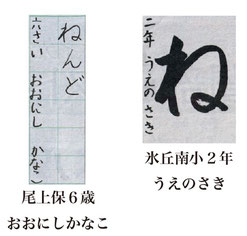 ねんど
六さい おおにし かなこ
尾上保6歳
おおにしかなこ
ね
二年 うえの さき
氷丘南小2年
うえのさき